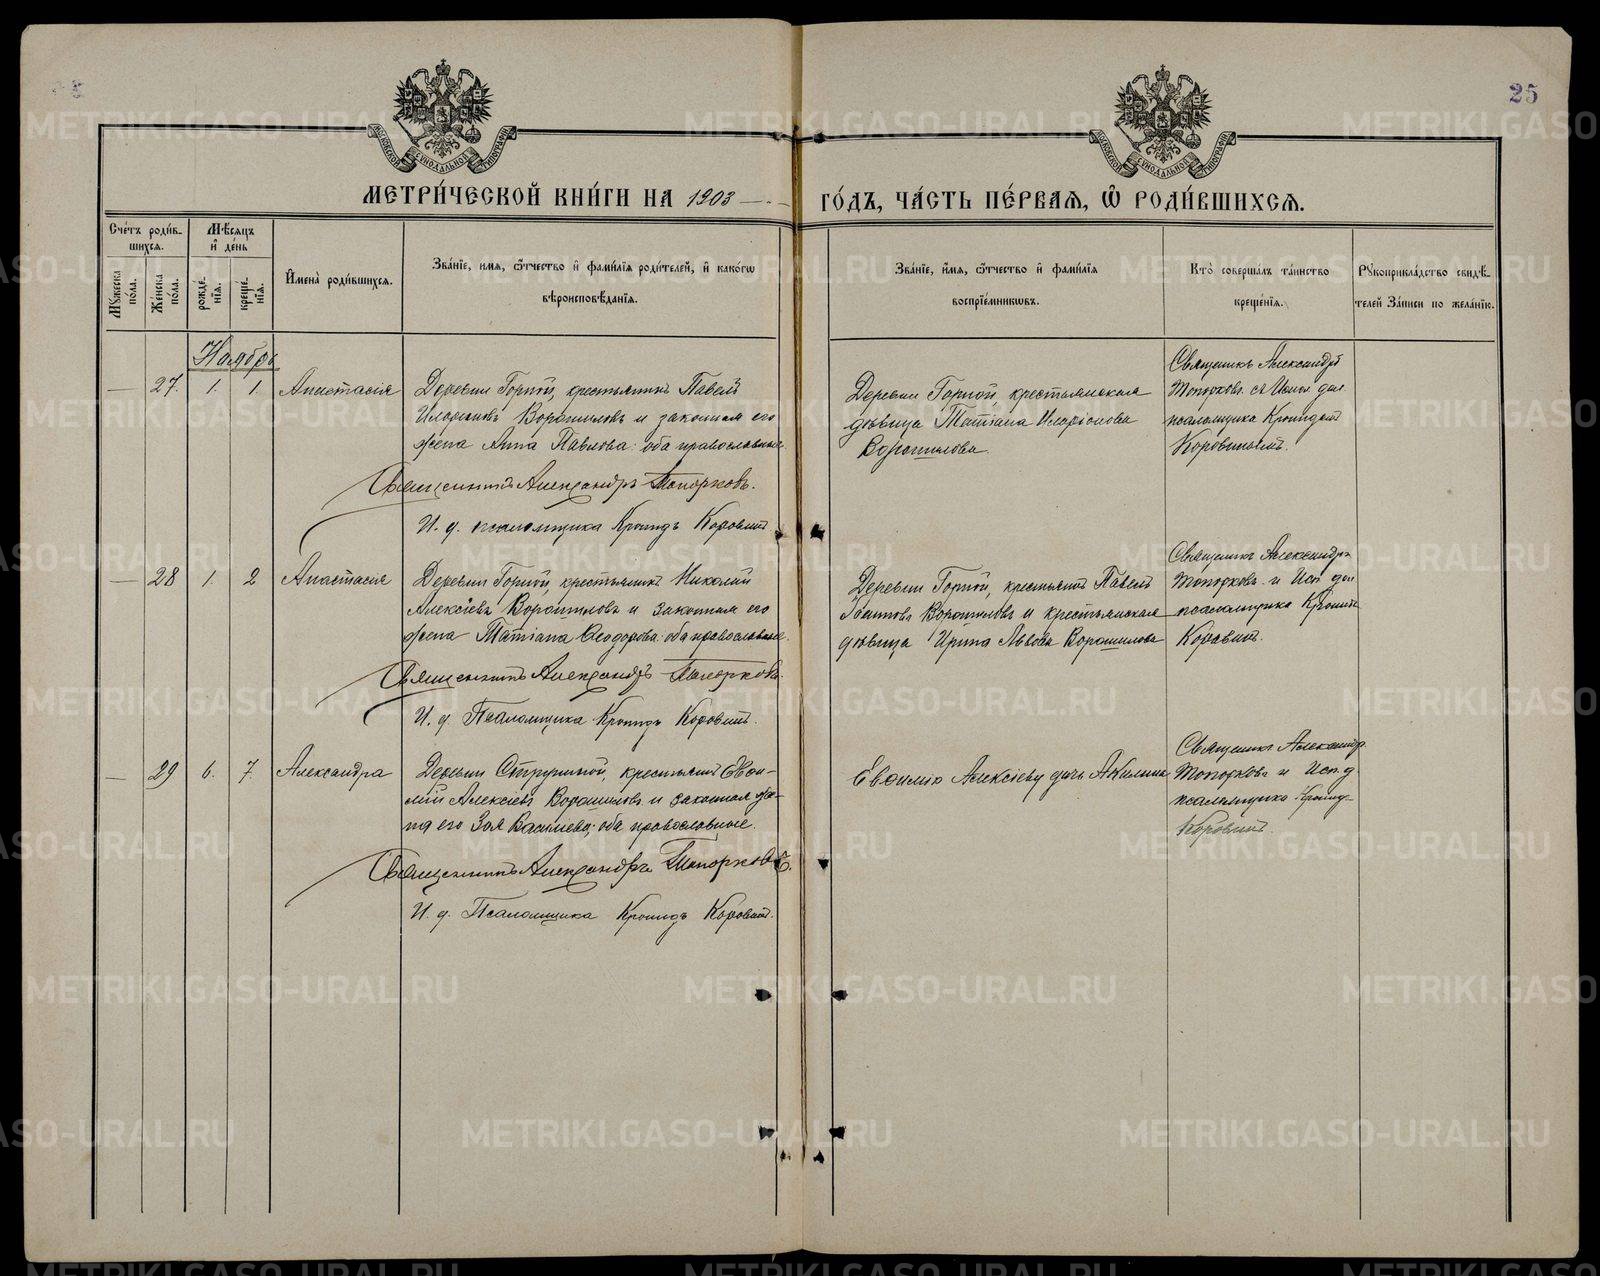 25
МОСКОВСКОЙ СѴНОДАЛЬНОЙ ТИПОГРАФІИ
МОСКОВСКОЙ СѴНОДАЛЬНОЙ ТИПОГРАФІИ
МЕТРИ́ЧЕСКОЙ КНИ́ГИ НА 1903
ГО́ДЪ, ЧА́СТЬ ПЕ́РВАѦ, Ѡ҆ РОДИ́ВШИХСѦ.
Сче́тъ роди́в-
шихсѧ.
Мѣ́сѧцъ
и҆ де́нь
Мꙋ́жеска
по́ла.
Же́нска
по́ла.
рожде́-
нїѧ.
креще́-
нїѧ.
И҆мена̀ роди́вшихсѧ.
Зва́нїе, и́мѧ, ѻ҆́тчество и҆ фами́лїѧ роди́телей, и҆ како́гѡ
вѣроисповѣ́данїѧ.
Зва́нїе, и҆́мѧ, ѻ҆́тчество и҆ фами́лїѧ
воспрїе́мникѡвъ.
Кто̀ соверша́лъ та́инство
креще́нїѧ.
Рꙋкоприкла́дство свидѣ́-
телей За́писи по жела́нїю.
Ноябрь
— 27. 1. 1. Анастасія
Деревни Горной, крестьянинъ Павелъ
Ворошиловъ и законная его
жена Анна Павлова: оба православные
Священникъ Александръ Топорковъ.
И. д. псаломщика Кронидъ Коровинъ.
Деревни Горной, крестьянская
дѣвица Татіана Иларіонова
Ворошилова.
Священникъ Александръ
Топорковъ
псаломщика Кронидомъ
Коровинымъ.
— 28 1. 2 Анастасія
Деревни Горной, крестьянинъ Николай
Алексіевъ Ворошиловъ и законная его
жена Татіана Ѳеодорова: оба православные.
Священникъ Александръ Топорковъ.
И. д. Псаломщика Кронидъ Коровинъ.
Деревни Горной, крестьянинъ Павелъ
Ворошиловъ и крестьянская
дѣвица Ирина Львова Ворошилова
Священникъ Александръ
Топорковъ и Исп. дол
псаломщика Кронидъ
Коровинъ.
— 29 6. 7. Александра
Деревни крестьянинъ Евѳи-
мій Алексіевъ Ворошиловъ и законная же-
на его Зоя Василіева; оба православные.
Священникъ Александръ Топорковъ.
И. д. Псаломщика Кронидъ Коровинъ.
Алексіеву дочь
Священникъ Александръ
Топорковъ и Исп. д.
псаломщика Кронидъ
Коровинъ.
METRIKI.GASO-URAL.RU